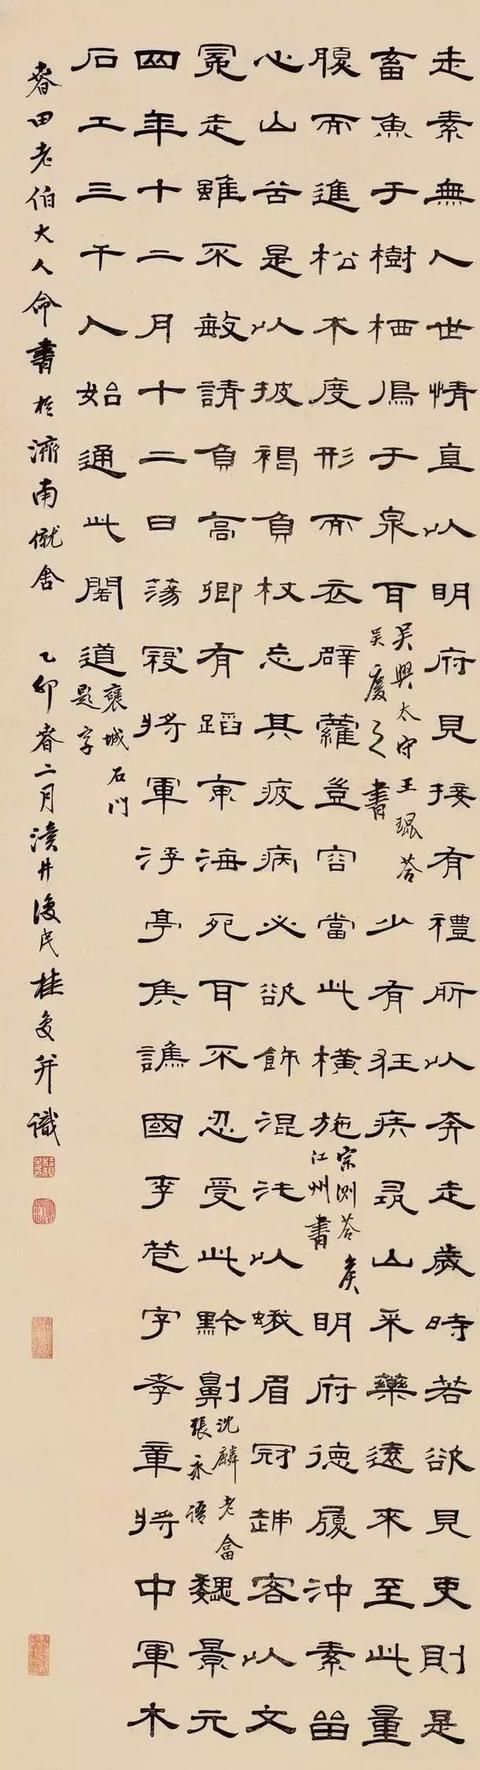 走素無人世情直以明府見接有禮所以奔走歲時若欲見吏則是
畜魚于樹栖鳥于泉耳
吳興太守王琨荅
吳慶之書
少有狂疾尋山采藥遠來至此量
腹而進松朮度形而衣薜蘿豈容當此橫施
宗測荅
江州書
明府德履沖素留
心山谷是以披褐負杖忘其疲病必欲飾混沌以蛾眉冠越客以文
冕走雖不敏請負高卿有蹈東海死耳不忍受此黔劓
沈麟士荅
張永語
魏景元
四年十二月十二日蕩寇將軍浮亭侯譙國李苞字孝章將中軍木
石工三千人始通此閣道
襃城石門
題字
春田老伯大人命書於濟南僦舍 乙卯春二月瀆井復民桂馥并識